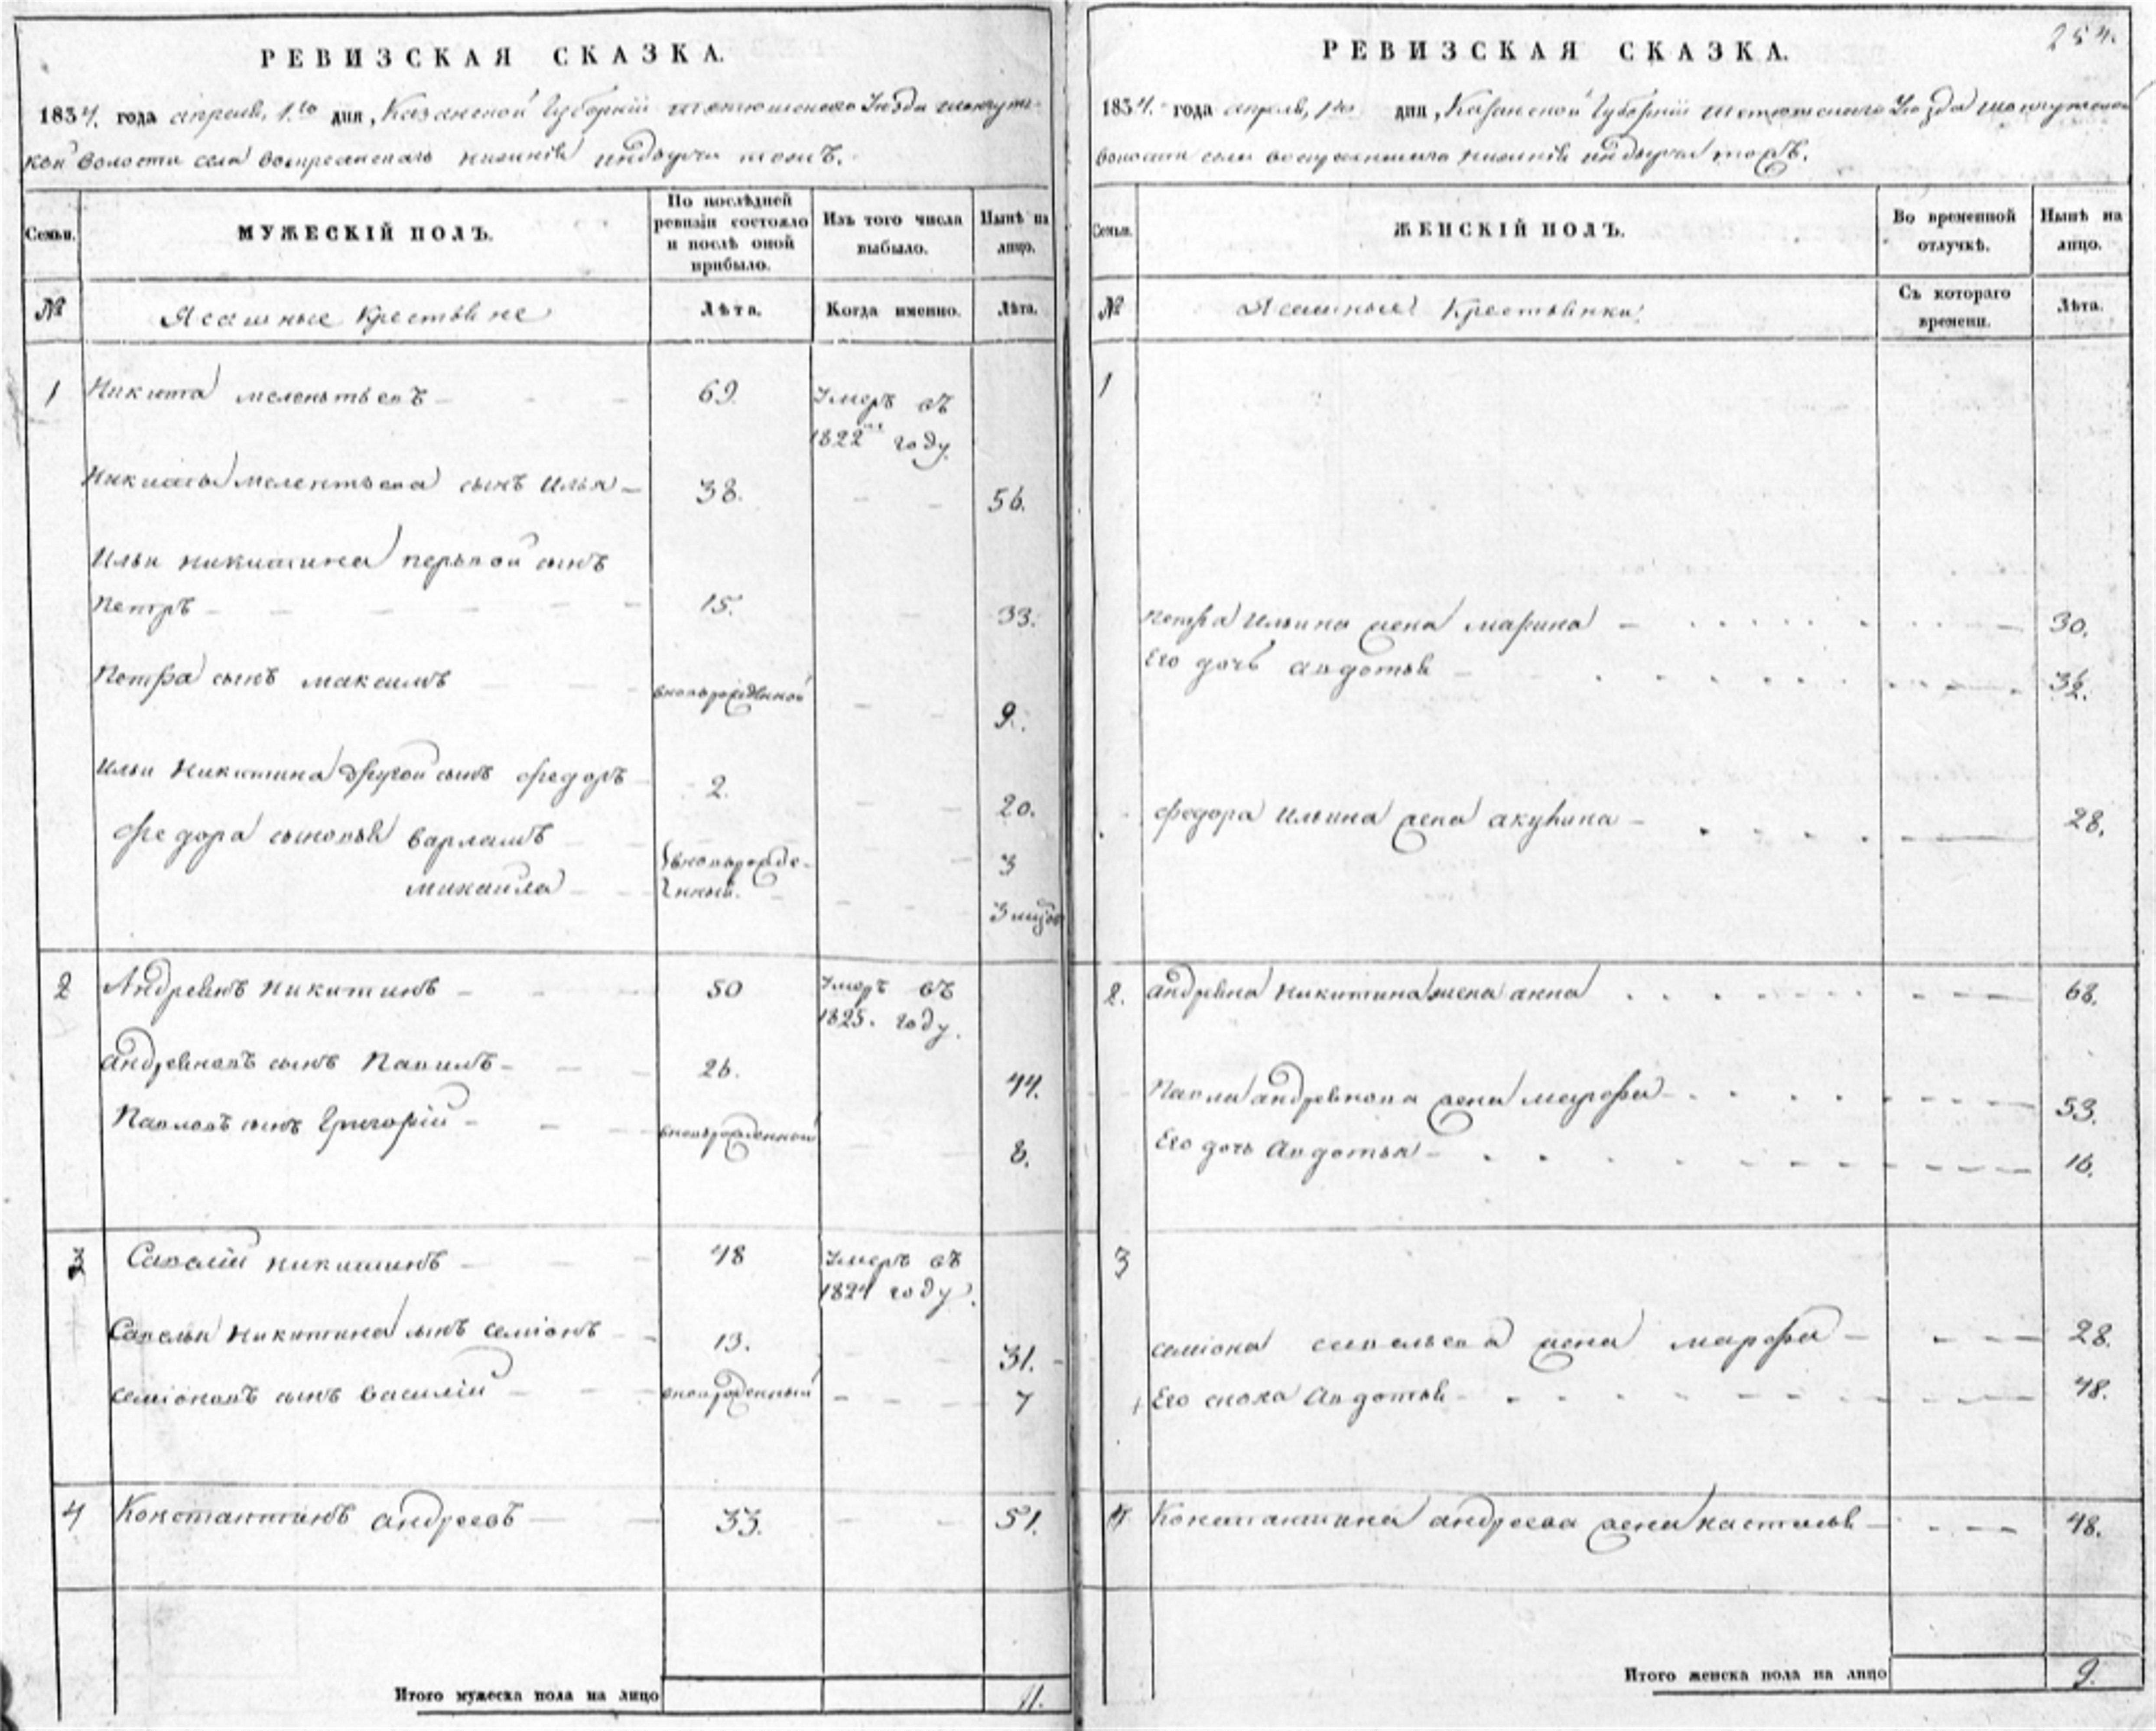 РЕВИЗСКАЯ СКАЗКА.
1834. года апреля, 1.го дня, Казанской Губернии Тетюшского Уезда
кой волости села воскресенскаго нижнiя индырчи тожъ.
Семьи.
МУЖЕСКIЙ ПОЛЪ.
По послѣдней ревизiи состояло и послѣ оной прибыло.
Изъ того числа выбыло.
Нынѣ на лицо.
№
Ясашные Крестьяне
Лѣта.
Когда именно.
Лѣта.
1 Никита мелентьевъ 69. Умеръ въ
1822м году.
Никиты мелентьева сынъ Илья 38. 56.
Ильи никитина первой сынъ
Петръ 15. 33.
Петра сынъ максимъ вновьрожденной 9.
Ильи Никитина другой сынъ федоръ 2. 20.
федора сыновья варламъ вновьрожде- 3
михаила нные. 3
2 Андреянъ никитинъ 50 Умеръ въ
1825. году.
андреяновъ сынъ Павилъ 26. 44.
Павловъ сынъ Григорiй вновьрожденной 8.
3 Савелiй никитинъ 48 Умеръ въ
1824 году.
Савельи Никитина сынъ семiонъ 13. 31.
семiоновъ сынъ василiй вноврожденный 7
4 Константинъ андреевъ 33. 51.
Итого мужеска пола на лицо 11.
254.
РЕВИЗСКАЯ СКАЗКА.
1834. года апреля, 1го дня, Казанской Губернiи Тетюшскаго Уезда
волости села воскресенскаго нижнiя индырчи тожъ.
Семьи.
ЖЕНСКIЙ ПОЛЪ.
Во временной отлучкѣ.
Нынѣ на лицо.
№
Ясашные Крестьянки
Съ котораго времени.
Лѣта.
1
Петра Ильина жена марина 30.
Его дочь авдотья
федора Ильина жена акулина 28.
2. андреяна никитина жена анна 68.
Павла андреянова жена марфа 53.
Его дочь Авдотья 16.
3
семiона савельева жена марфа 28.
Его сноха Авдотья 48.
4 Константина андреева жена настасья 48.
Итого женска пола на лицо 9.